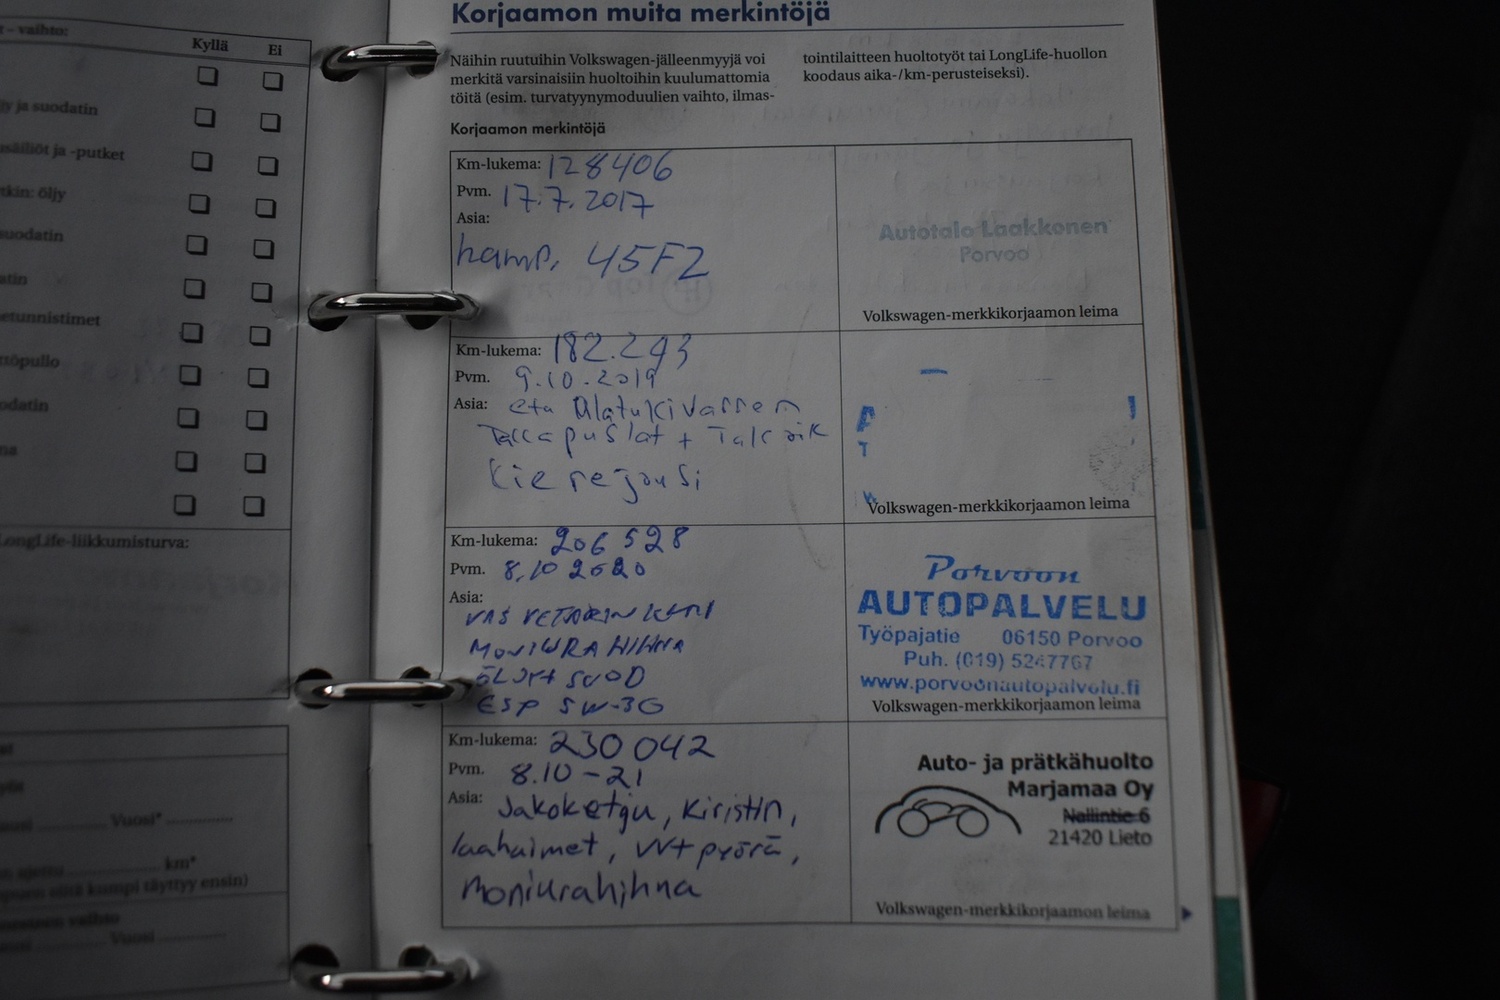 – vaihto:
Kyllä
Ei
ja suodatin
ja -putket
öljy
suodatin
etunnistimet
LongLife-liikkumisturva:
Vuosi*
km*
täyttyy ensin)
vaihto
Vuosi
Korjaamon muita merkintöjä
Näihin ruutuihin Volkswagen-jälleenmyyjä voi
merkitä varsinaisiin huoltoihin kuulumattomia
töitä (esim. turvatyynymoduulien vaihto, ilmas-
tointilaitteen huoltotyöt tai LongLife-huollon
koodaus aika-/km-perusteiseksi).
Korjaamon merkintöjä
Km-lukema: 128406
Pvm. 17.7.2017
Asia:
hamp. 45FZ
Autotalo Laakkonen
Porvoo
Volkswagen-merkkikorjaamon leima
Km-lukema: 182.243
Pvm. 9.10.2019
Asia: eta Alatukivarren
Takapuslat +
Volkswagen-merkkikorjaamon leima
Km-lukema: 206 528
Pvm. 8.10 2020
Asia:
VAS VETARIN KUMI
MONIURAHIHNA
ÖLJY+ SUOD
ESP 5W-30
Porvoon
AUTOPALVELU
Työpajatie 06150 Porvoo
Puh. (019) 5247767
www.porvoonautopalvelu.fi
Volkswagen-merkkikorjaamon leima
Km-lukema: 230 042
Pvm. 8.10-21
Asia: Jakoketju, Kiristin,
laahaimet, VVT pyörä,
Moniurahihna
Auto- ja prätkähuolto
Marjamaa Oy
Nallintie 6
21420 Lieto
Volkswagen-merkkikorjaamon leima